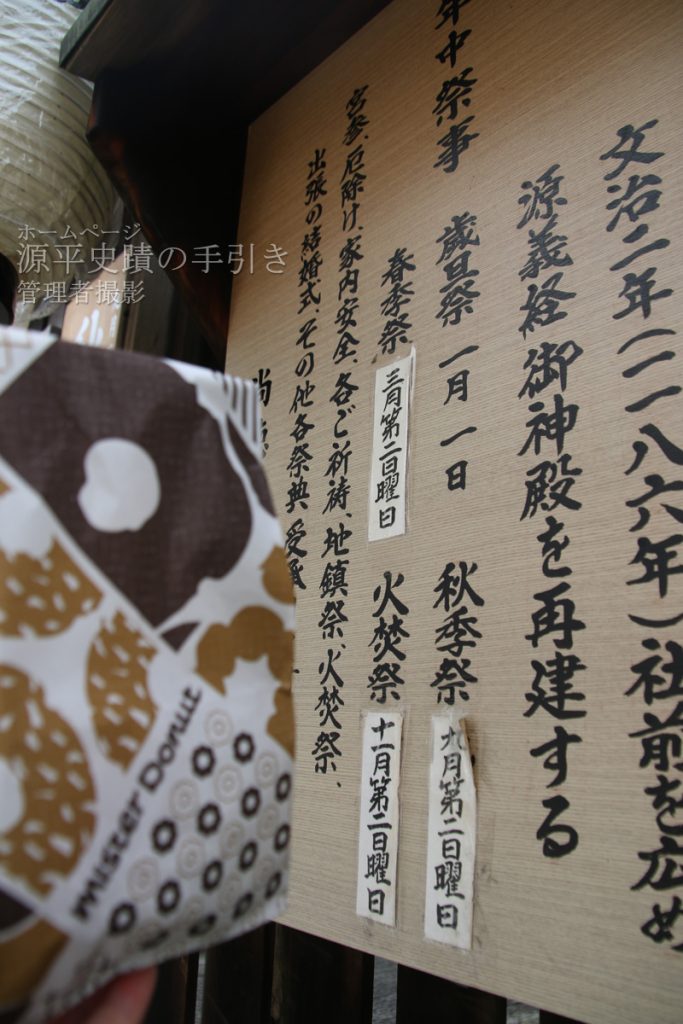 文治二年(一一八六年)社前を広め
源義経御神殿を再建する
年中祭事 歳旦祭 一月一日 秋季祭 九月第二日曜日
春季祭 三月第二日曜日 火焚祭 十一月第二日曜日
宮参、厄除け、家内安全、各ご祈祷、地鎮祭、火焚祭、
出張の結婚式、その他各祭典 受承
ホームページ
源平史蹟の手引き
管理者撮影
mister Donut